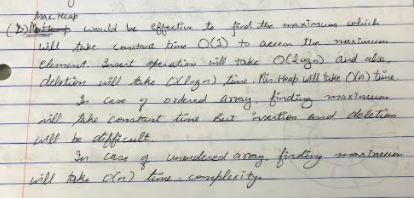 Max. Heap
(3) would be effective to find the maximum which
will take constant time O(1) to access the maximum
element. Insert operation will take O(logn) and also
deletion will take O(logn) time. Min. Heap will take O(n) time
In case of ordered array, finding maximum
will take constant time but insertion and deletion
will be difficult.
In case of unordered array, finding maximum
will take O(n) time complexity.